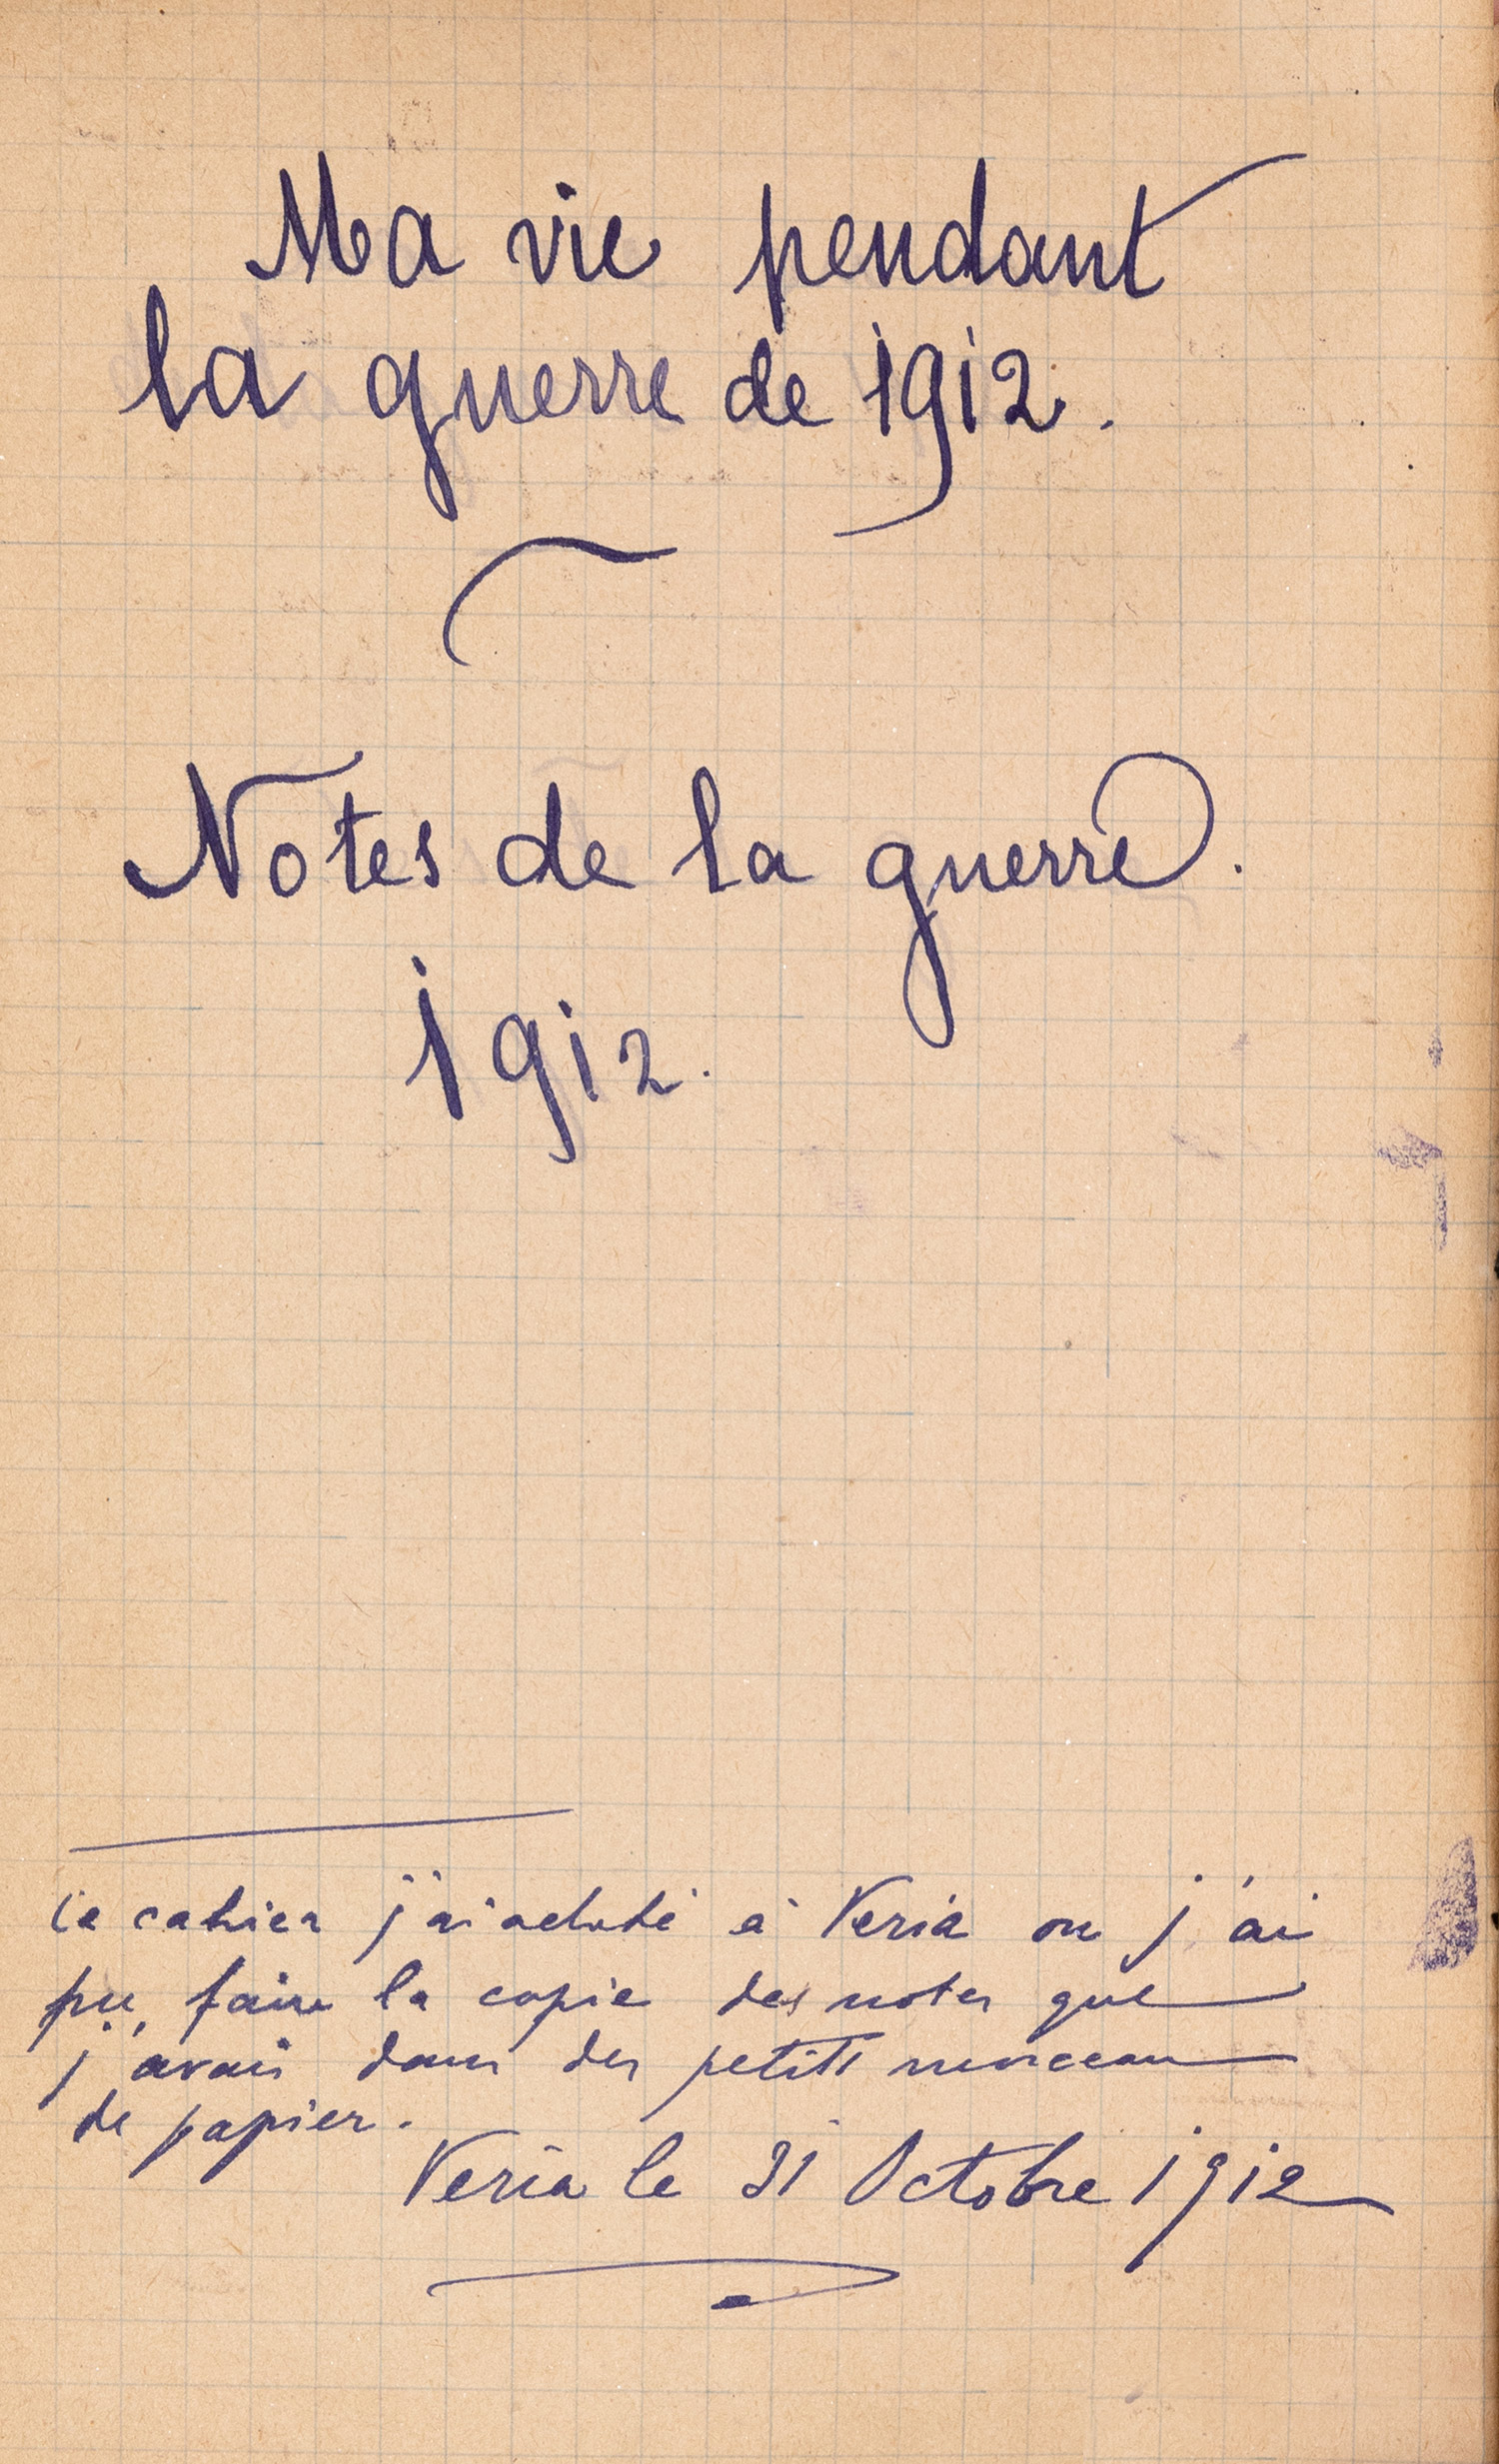 Ma vie pendant
la guerre de 1912.
Notes de la guerre.
1912.
Ce cahier j'ai acheté à Veria ou j'ai
pu, faire la copie des notes que
j'avais dans des petits morceau
de papier.
Veria le 31 Octobre 1912